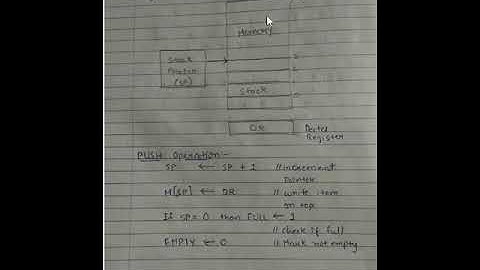 Memory
Stack
Pointer
(SP)
Stack
DR
Data
Register
PUSH Operation:-
SP ← SP + 1 // increment
Pointer
M[SP] ← DR // write item
on top
If SP = 0 then FULL ← 1
// check if full
EMPTY ← 0 // Mark not empty